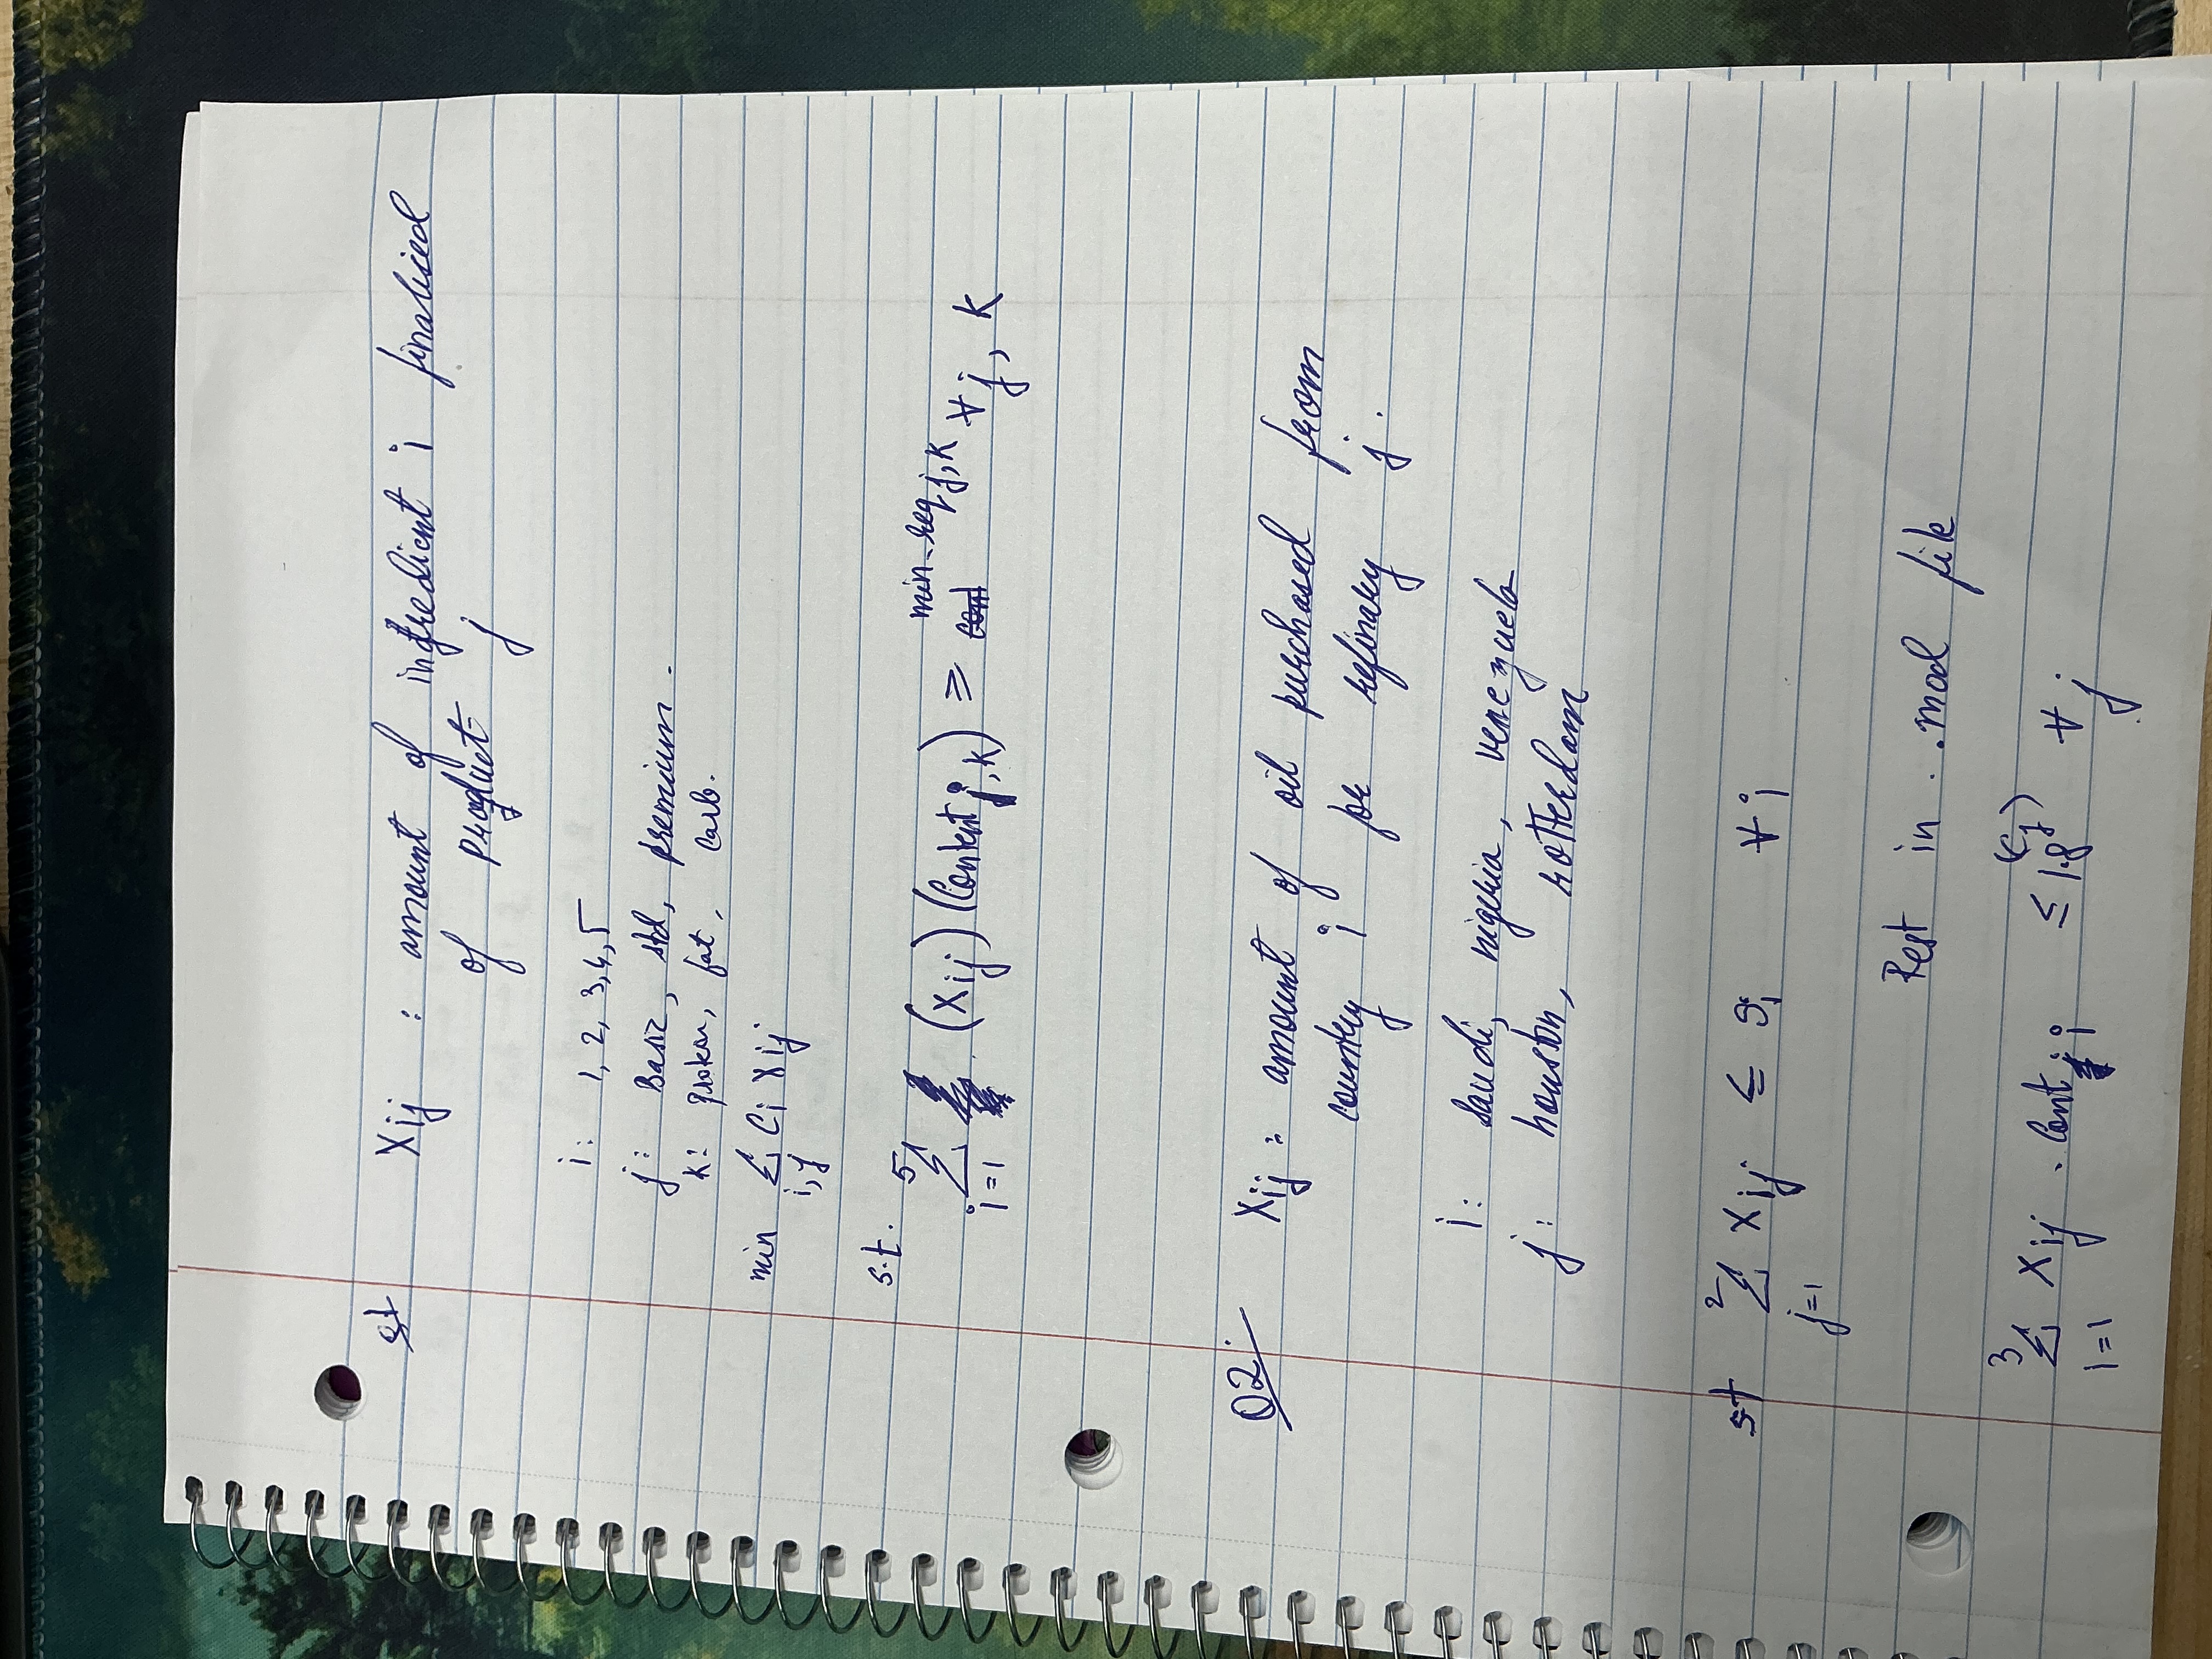 Xij : amount of ingredient i finalised
of product j
i: 1, 2, 3, 4, 5
j: Basic, std, premium.
k: protein, fat, carb.
min Σ Ci Xij
i, j
s.t.
5
Σ (Xij) (Content j,k) ≥ min-req j,k ∀ j, k
i=1
Q2.
Xij : amount of oil purchased from
country i for refinary j.
i: saudi, nigeria, venezuela
j: houston, rotterdam
2
s.t Σ Xij ≤ Si ∀ i
j=1
Rest in .mod file
3
Σ Xij . Cont i ≤ 1.8 (Cj) ∀ j
i=1